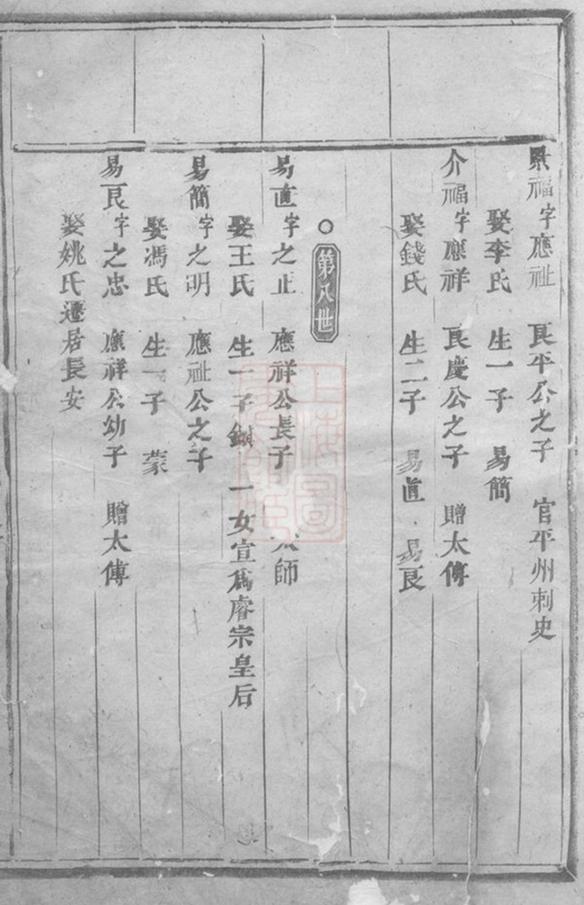 景福字應祉 良平公之子 官平州刺史
娶李氏 生一子 易簡
介福字應祥 良慶公之子 贈太傅
娶錢氏 生二子 易直 易良
○第八世
易直字之正 應祥公長子 太師
娶王氏 生一子 一女宣為睿宗皇后
易簡字之明 應祉公之子
娶馮氏 生一子 蒙
易良字之忠 應祥公幼子 贈太傅
娶姚氏遷居長安